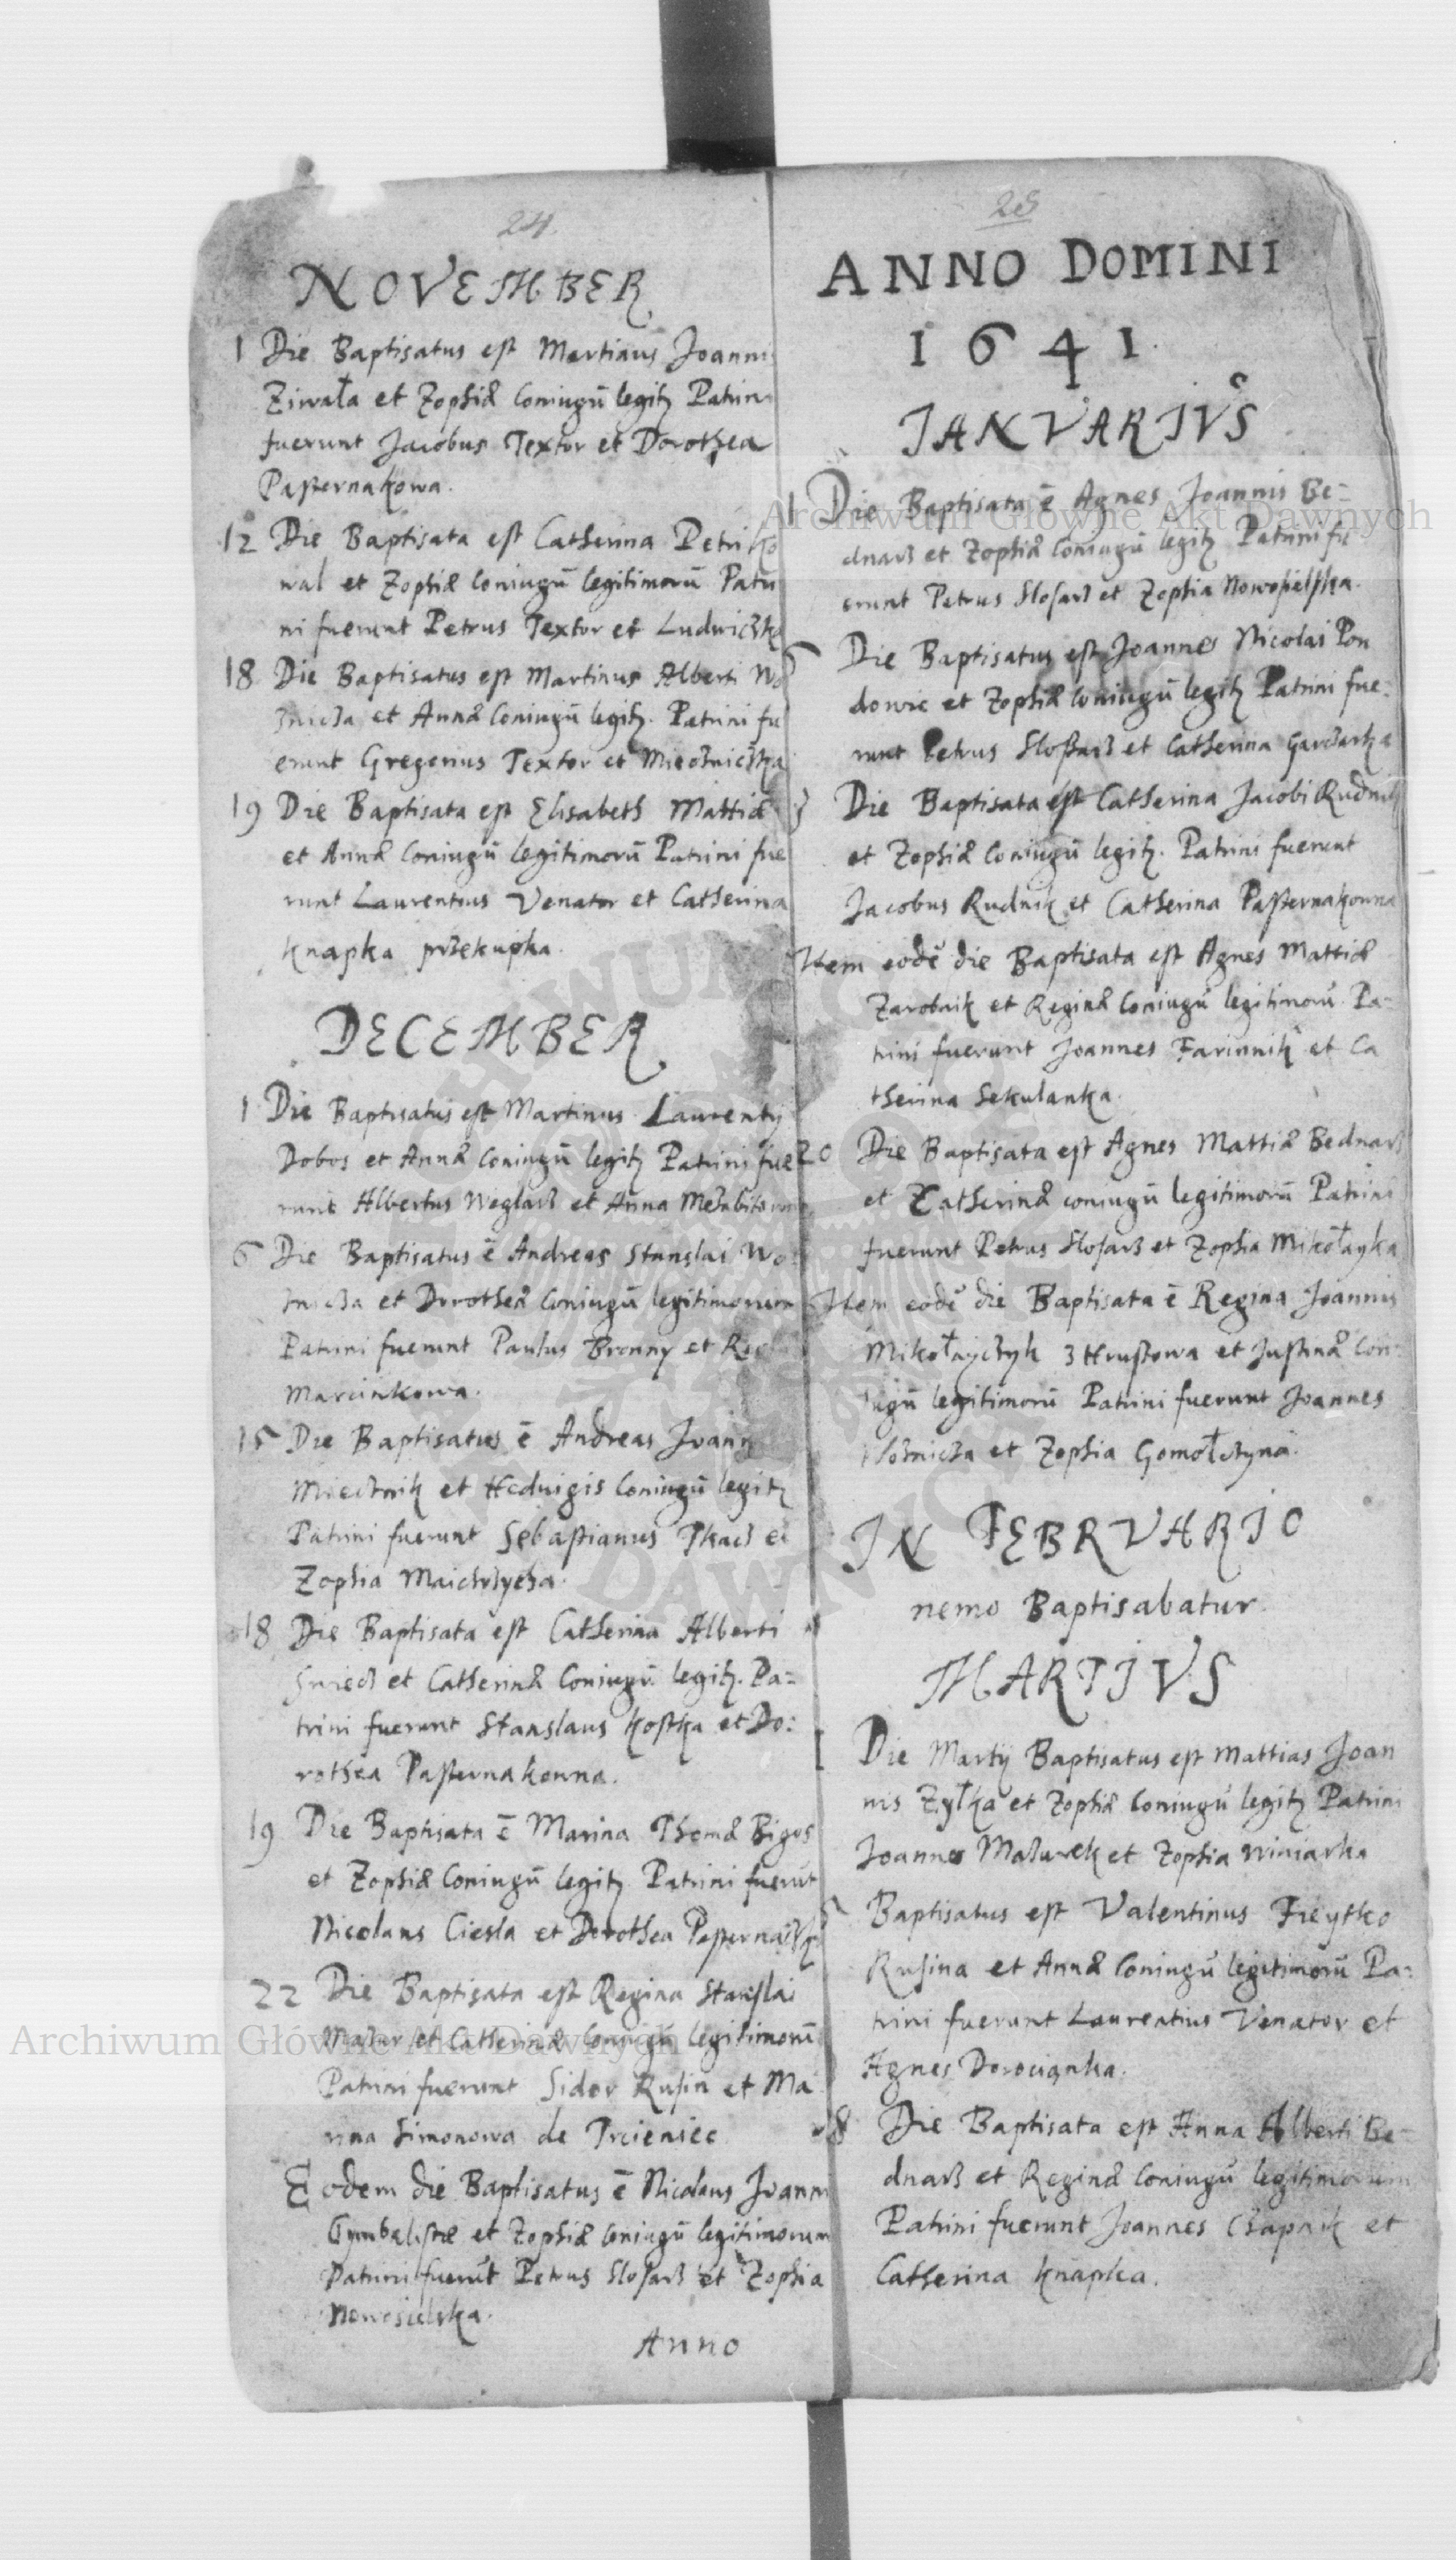 24
NOVEMBER
1 Die Baptisatus est Martinus Joannis
Ziwała et Zophiæ Coniugū legitz Patrini
fuerunt Jacobus Textor et Dorothea
Pasternakowa.
12 Die Baptisata est Catherina Petri Ko
wal et Zophiæ Coniugū legitimorū Patri
ni fuerunt Petrus Textor et Ludwiczka
18 Die Baptisatus est Martinus Alberti Wo
znicza et Annæ Coniugū legitz. Patrini fu
erunt Gregorius Textor et Miecżniczka
19 Die Baptisata est Elisabeth Mattiæ
et Annæ Coniugū legitimorū Patrini fue
runt Laurentius Venator et Catherina
Knapka przekupka.
DECEMBER
1 Die Baptisatus est Martinus Laurentij
Dobos et Annæ Coniugū legitz Patrini fue
runt Albertus Węglarz et Anna
6 Die Baptisatus ē Andreas Stanslai Wo
znicza et Dorotheæ Coniugū legitimorum
Patrini fuerunt Paulus Bronny et
Marcinkowa.
15 Die Baptisatus ē Andreas Joann
Miecznik et Hedvigis Coniugū legitz
Patrini fuerunt Sebastianus Tkacz et
Zophia
18 Die Baptisata est Catherina Alberti
et Catherinæ Coniugū legitz. Pa=
trini fuerunt Stanslaus Kostka et Do:
rothea Pasternakonna.
19 Die Baptisata ē Marina Thomæ Bigos
et Zophiæ Coniugū legitz Patrini fuerūt
Nicolaus Ciesla et Dorothea
22 Die Baptisata est Regina Stanslai
Mazur et Catherinæ Coniugū legitimorū
Patrini fuerunt Sidor Rusin et Ma
rina Simonowa de Trcieniec
Eodem die Baptisatus ē Nicolaus Joanni
Cymbalistæ et Zophiæ Coniugū legitimorum
Patrini fuerūt Petrus Slosarz et Zophia
Nowosielska.
Anno
25
ANNO DOMINI
1641.
JANVARIVS
1 Die Baptisata ē Agnes Joannis Be=
dnarz et Zophiæ Coniugū legitz Patrini fu
erunt Petrus Slosarz et Zophia Nowosielska.
Die Baptisatus est Joannes Nicolai Pon
dowic et Zophiæ Coniugū legitz Patrini fue=
runt Petrus Slosarz et Catherina Garczarka
Die Baptisata est Catherina Jacobi Rudnik
et Zophiæ Coniugū legitz. Patrini fuerunt
Jacobus Rudnik et Catherina Pasternakonna
Item eodē die Baptisata est Agnes Mattiæ
Zarobnik et Reginæ Coniugū legitimorū Pa=
trini fuerunt Joannes Farinnik et Ca
therina Sekulanka.
20 Die Baptisata est Agnes Mattiæ Bednarz
et Catherinæ coniugū legitimorū Patrini
fuerunt Petrus Slosarz et Zophia Mikołayka
Item eodē die Baptisata ē Regina Joannis
Mikołayczyk z Hrustowa et Justinæ Con
iugū legitimorū Patrini fuerunt Joannes
Woznicza et Zophia Gomołczyna.
IN FEBRVARIO
nemo Baptisabatur.
MARTIVS
1 Die Martij Baptisatus est Mattias Joan
nis Zyłka et Zophiæ Coniugū legitz Patrini
Joannes Mazurek et Zophia Winiarka
Baptisatus est Valentinus Freytko
Rusina et Annæ Coniugū legitimorū Pa=
trini fuerunt Laurentius Venator et
Agnes Dorocianka.
8 Die Baptisata est Anna Alberti Be=
dnarz et Reginæ Coniugū legitimorum
Patrini fuerunt Joannes Czapnik et
Catherina Knapka.
Archiwum Główne Akt Dawnych
Archiwum Główne Akt Dawnych